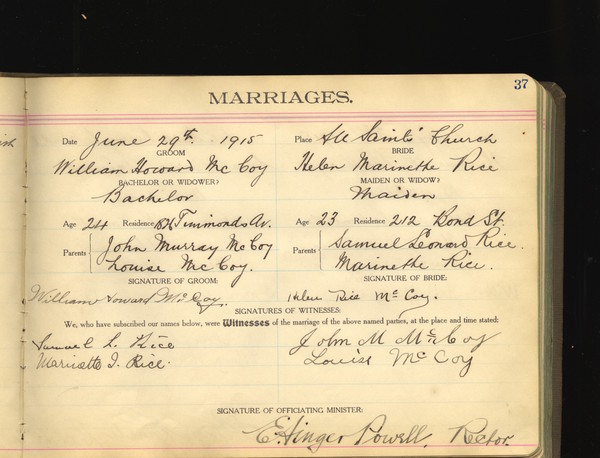 37
MARRIAGES.
Date June 29th. 1915 Place All Saints' Church
GROOM BRIDE
William Howard McCoy Helen Marinethe Rice
(BACHELOR OR WIDOWER) (MAIDEN OR WIDOW)
Bachelor Maiden
Age 24 Residence Timmonds Av. Age 23 Residence 212 Bond St.
Parents John Murray McCoy Parents Samuel Leonard Rice.
Louise McCoy. Marinethe Rice.
SIGNATURE OF GROOM: SIGNATURE OF BRIDE:
William Howard McCoy. Helen Rice McCoy.
SIGNATURES OF WITNESSES:
We, who have subscribed our names below, were Witnesses of the marriage of the above named parties, at the place and time stated:
Samuel L. Rice John M McCoy
Marinette I. Rice. Louise McCoy
SIGNATURE OF OFFICIATING MINISTER:
Powell, Rector.